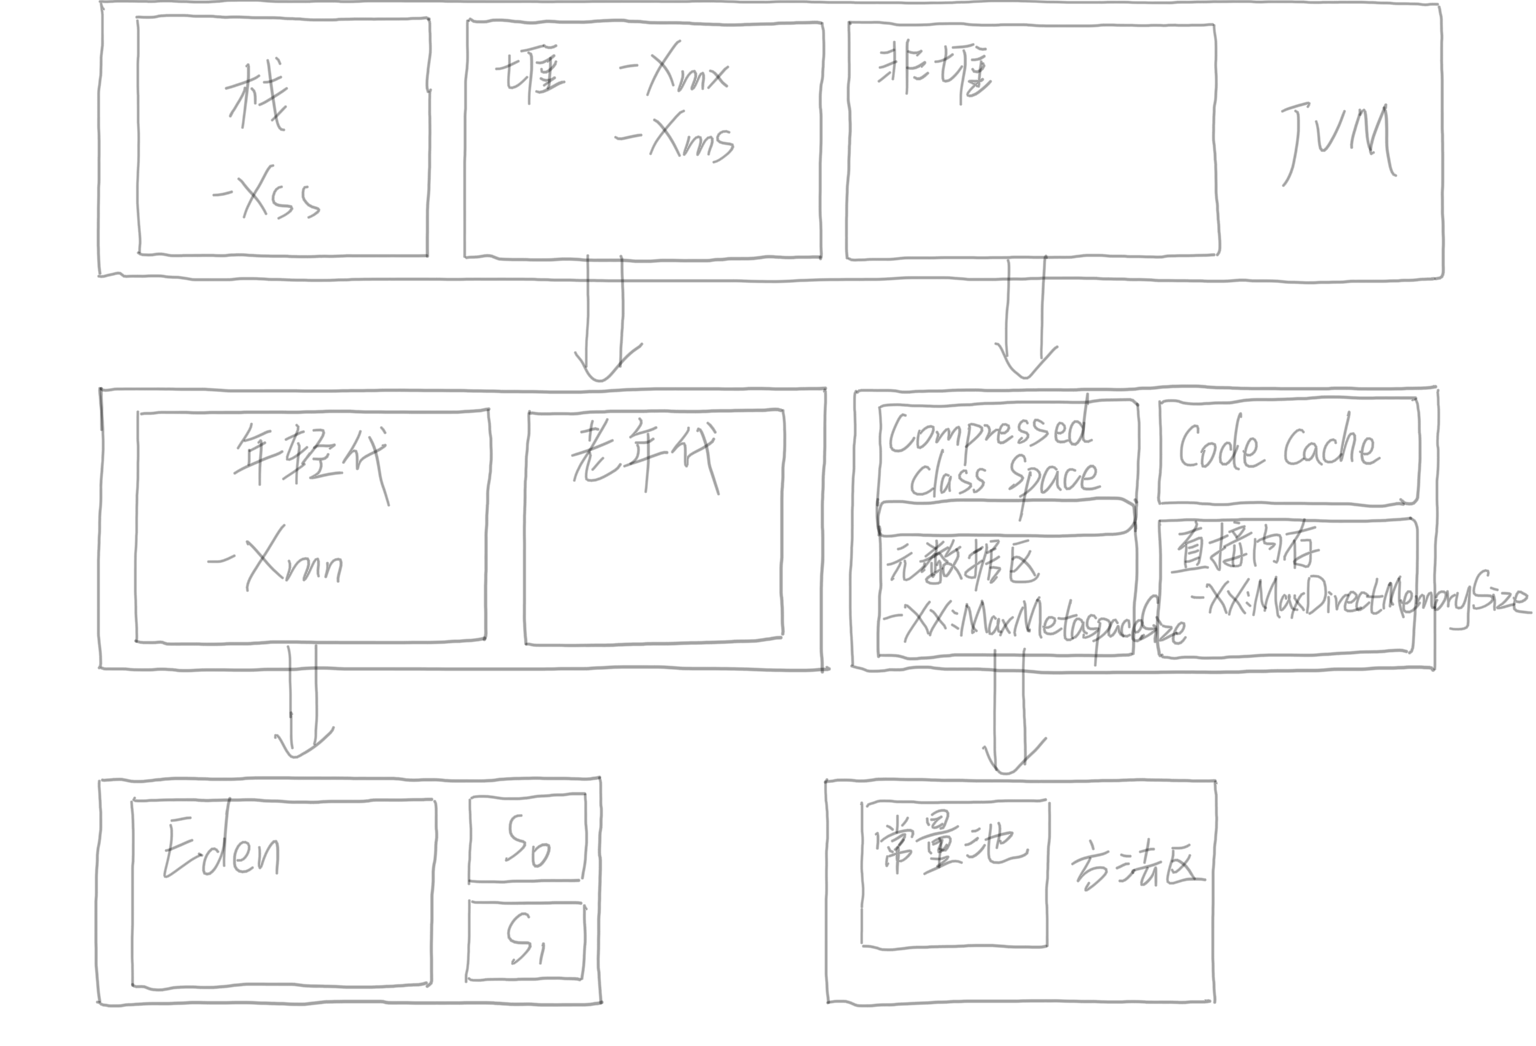 栈
-Xss
堆 -Xmx
-Xms
非堆
JVM
年轻代
-Xmn
老年代
Compressed
class Space
元数据区
-XX:MaxMetaspaceSize
Code Cache
直接内存
-XX:MaxDirectMemorySize
Eden
S0
S1
常量池
方法区